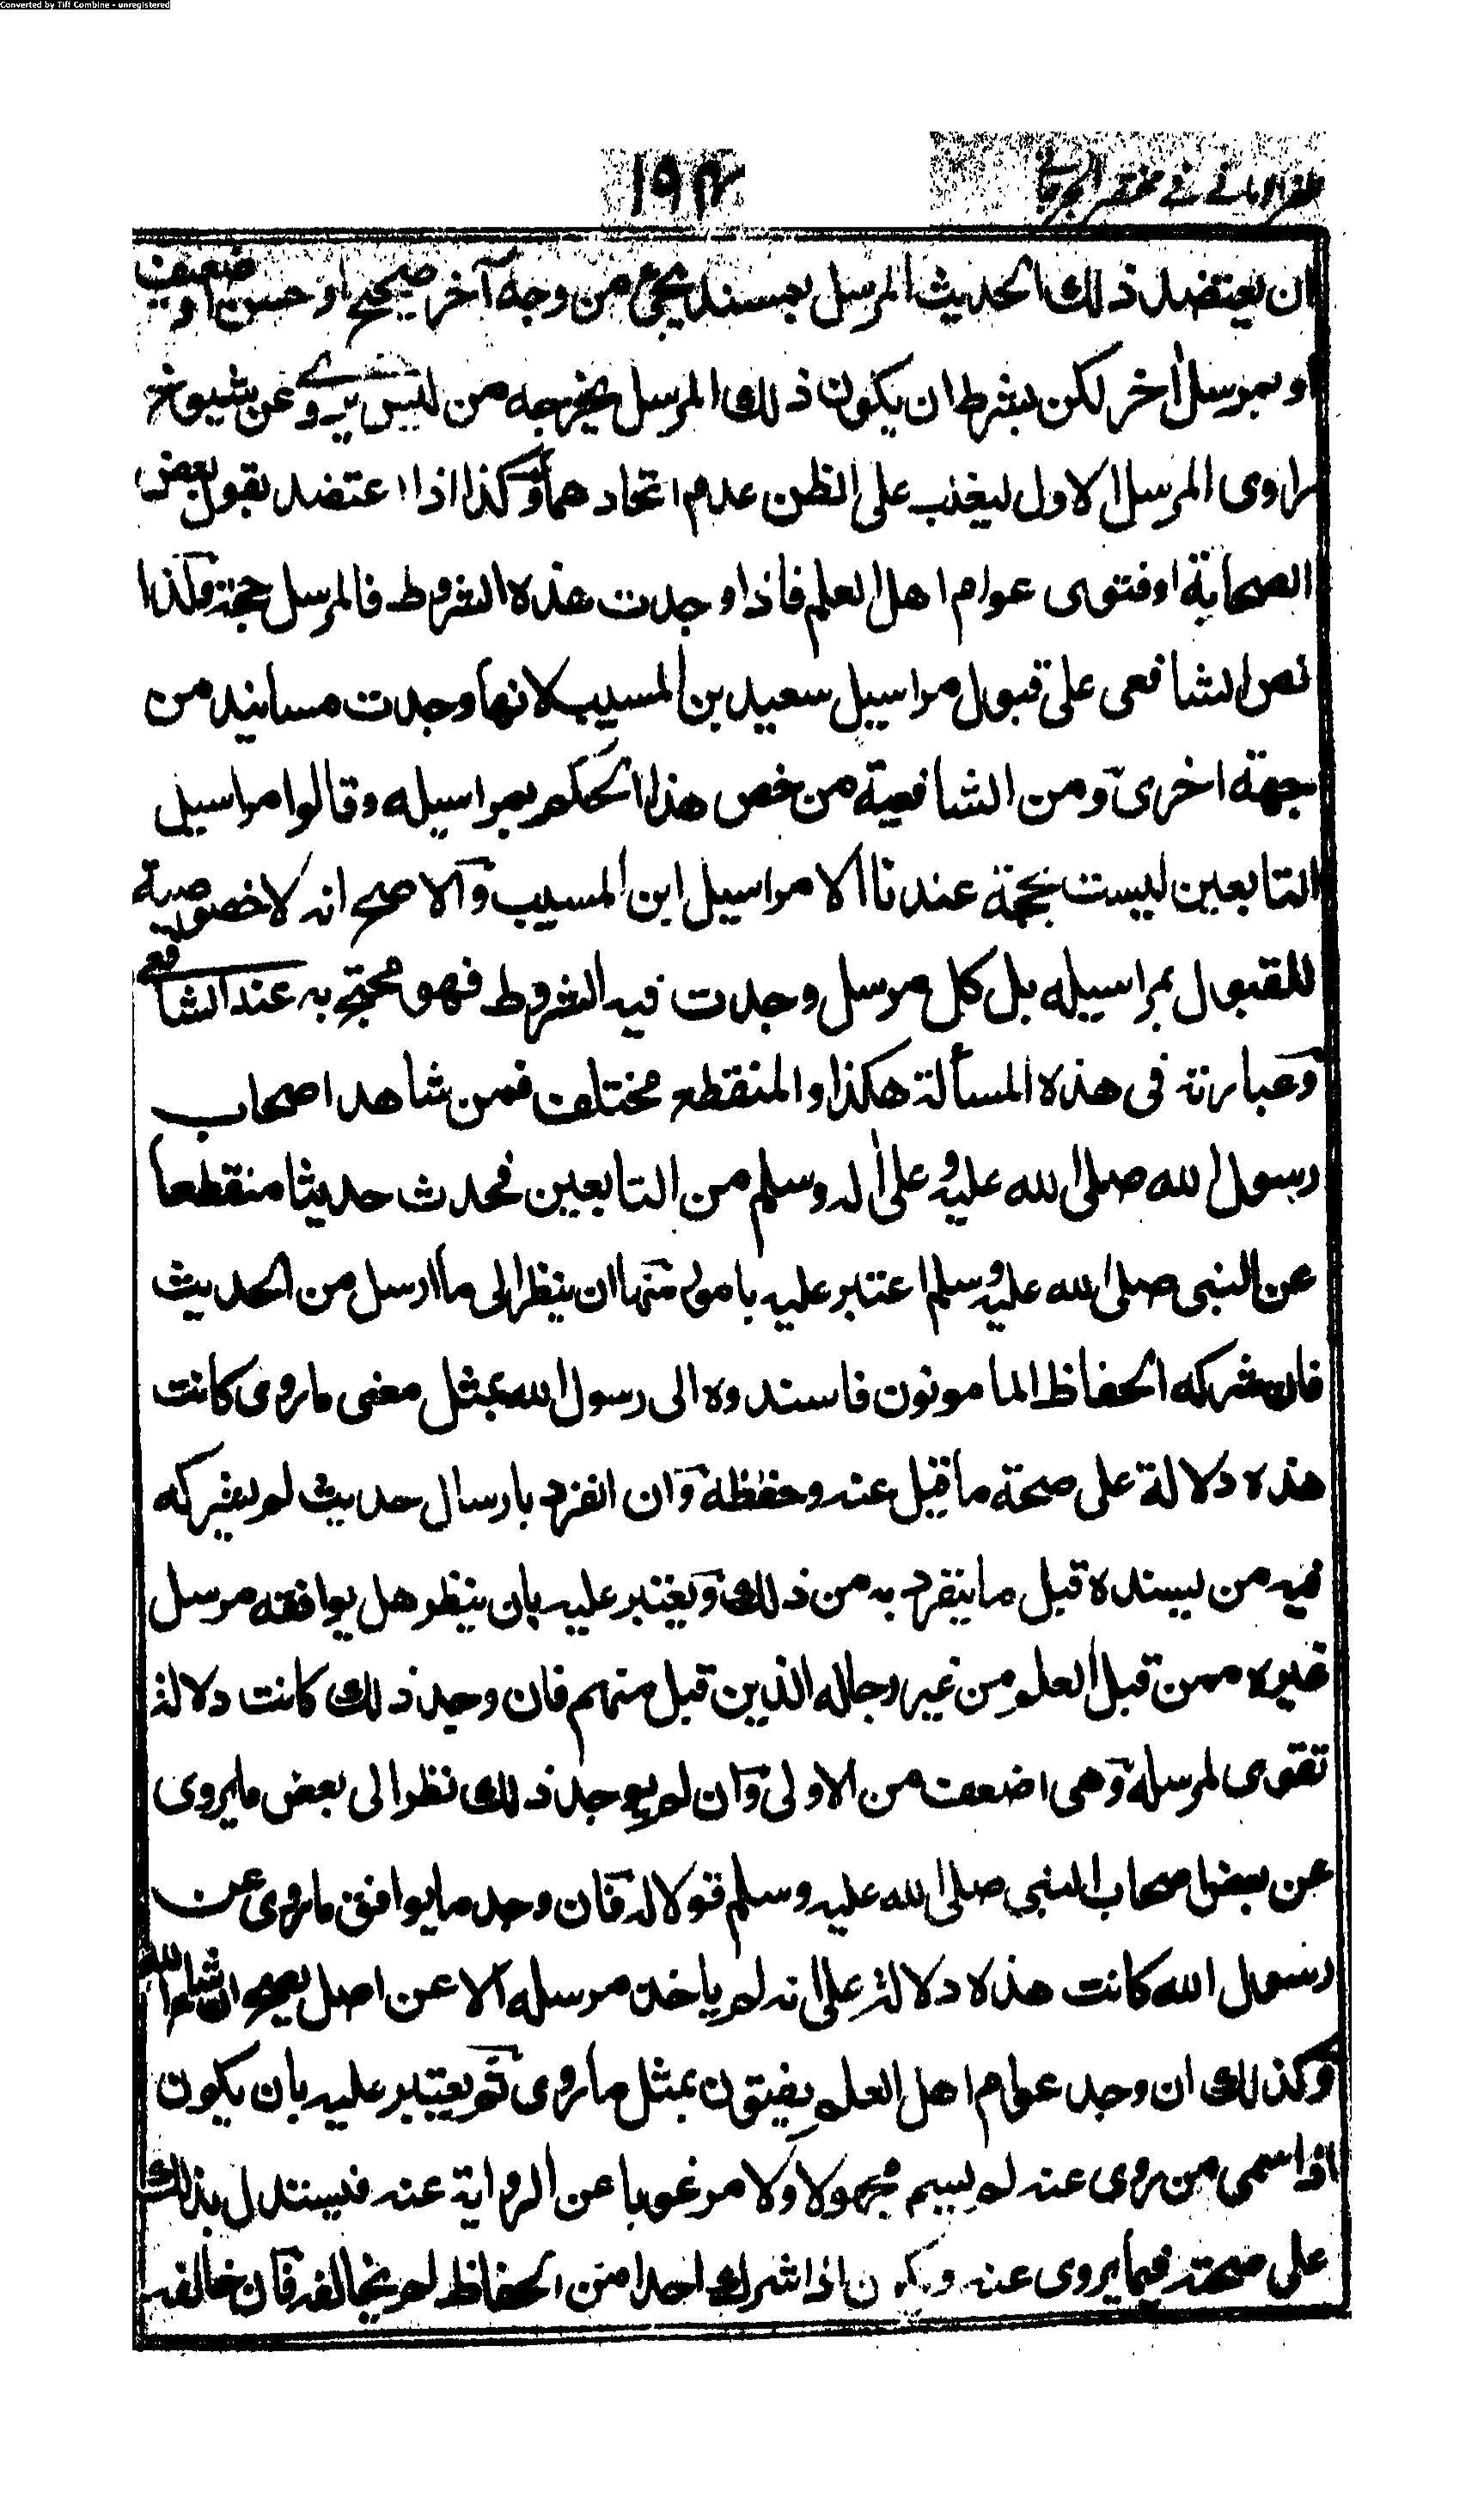 Converted by Tiff Combine - unregistered
ظفر الامانی فی مختصر الجرجانی
١٩٢
ان يعتضد ذلك الحديث المرسل بمسند يجئ من وجه آخر صحيح او حسن او ضعيف
او بمرسل اخر لكن بشرط ان يكون ذلك المرسل يخرجه من ليس يروے عن شيوخ
راوى المرسل الاول ليغلب على الظن عدم اتحادهما وكذا اذا اعتضد بقول بعض
الصحابة او فتوى عوام اهل العلم فاذا وجدت هذه الشروط فالمرسل حجة ولذا
نص الشافعى على قبول مراسيل سعيد بن المسيب لانها وجدت مسانيد من
جهة اخرى ومن الشافعية من خص هذا الحكم بمراسيله وقالوا مراسيل
التابعين ليست بحجة عندنا الا مراسيل ابن المسيب والاصح انه لا خصوصية
للقبول بمراسيله بل كل مرسل وجدت فيه الشروط فهو محتج به عند الشافعے
وعبارته فى هذه المسألة هكذا والمنقطع مختلف فمن شاهد اصحاب
رسول الله صلى الله عليه وعلى اله وسلم من التابعين فحدث حديثا منقطعا
عن النبى صلى الله عليه وسلم اعتبر عليه بامور منها ان ينظر الى ما ارسل من الحديث
فان شركه الحفاظ المامونون فاسندوه الى رسول الله بمثل معنى ما روى كانت
هذه دلالة على صحة ما قبل عنه وحفظه وان انفرد بارسال حديث لم يشركه
فيه من يسنده قبل ما ينفرد به من ذلك ويعتبر عليه بان ينظر هل يوافقه مرسل
غيره ممن قبل العلم من غير رجاله الذين قبل منهم فان وجد ذلك كانت دلالة
تقوى لمرسله وهى اضعف من الاولى وان لم يوجد ذلك نظر الى بعض ما يروى
عن بعض اصحاب النبى صلى الله عليه وسلم قولا له فان وجد ما يوافق ما روى عن
رسول الله كانت هذه دلالة على انه لم ياخذ مرسله الا عن اصل يصح ان شاء الله
وكذلك ان وجد عوام اهل العلم يفتون بمثل ما روى ثم يعتبر عليه بان يكون
اذا سمى من روى عنه لم يسم مجهولا ولا مرغوبا عن الرواية عنه فيستدل بذلك
على صحته فيما يروى عنه ويكون اذا شرك احدا من الحفاظ لم يخالفه فان خالفه